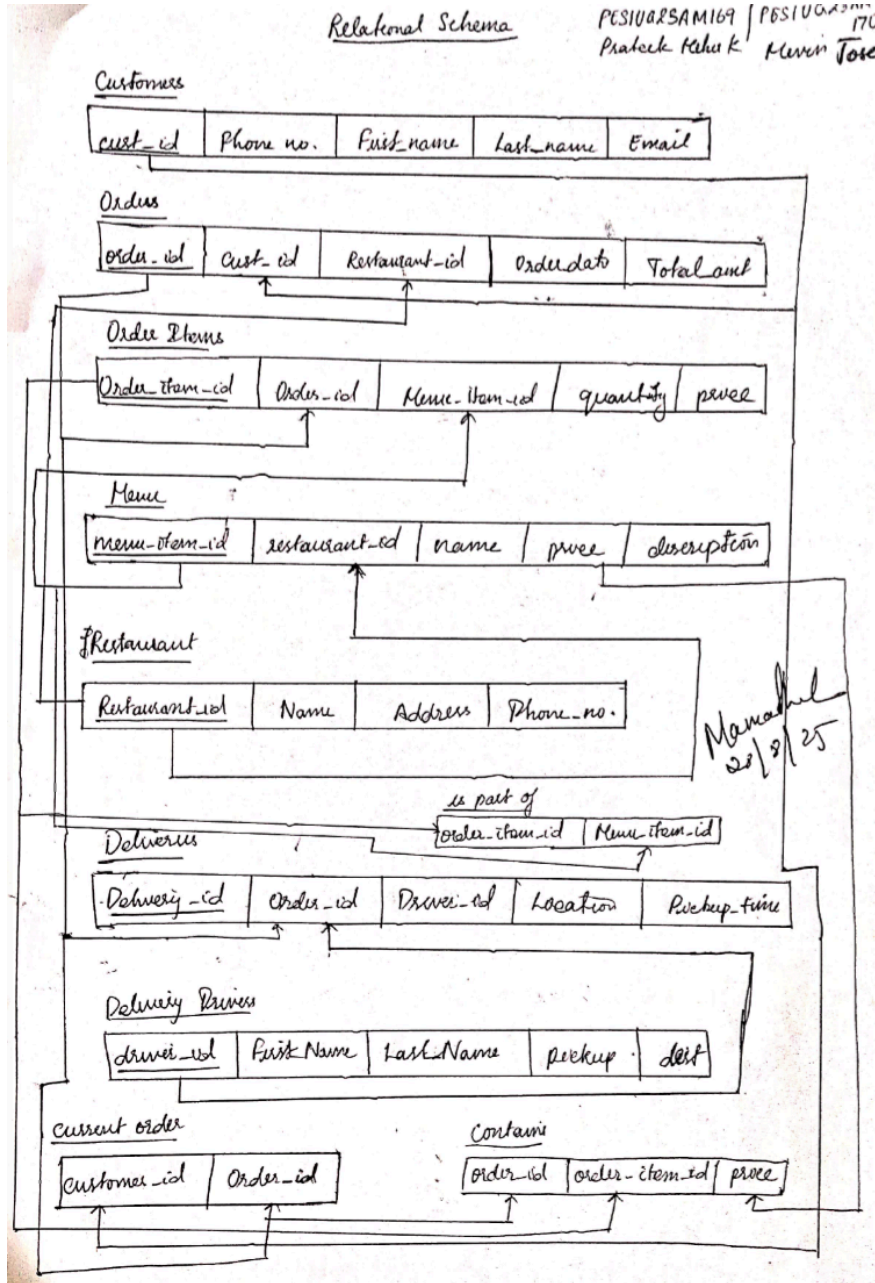 Relational Schema
PES1UG25AM169 | PES1UG25AM170
Prateek Mehuk | Mevin Jose
Customers
cust_id | Phone no. | First_name | Last_name | Email
Orders
order_id | Cust_id | Restaurant_id | Order_date | Total_amt
Order Items
Order_item_id | Order_id | Menu_item_id | quantity | price
Menu
menu_item_id | restaurant_id | name | price | description
Restaurant
Restaurant_id | Name | Address | Phone_no.
28/8/25
is part of
order_item_id | Menu_item_id
Deliveries
Delivery_id | Order_id | Driver_id | Location | Pickup_time
Delivery Drivers
driver_id | First Name | Last_Name | pickup | dest
current order
customer_id | Order_id
Contains
order_id | order_item_id | price